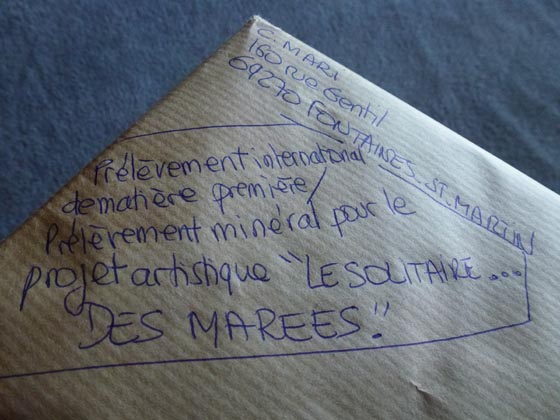 C. MARI
160 rue Gentil
69270 FONTAINES. ST. MARTIN
Prélèvement international
de matière première /
Prélèvement minéral pour le
projet artistique "LE SOLITAIRE...
DES MAREES."